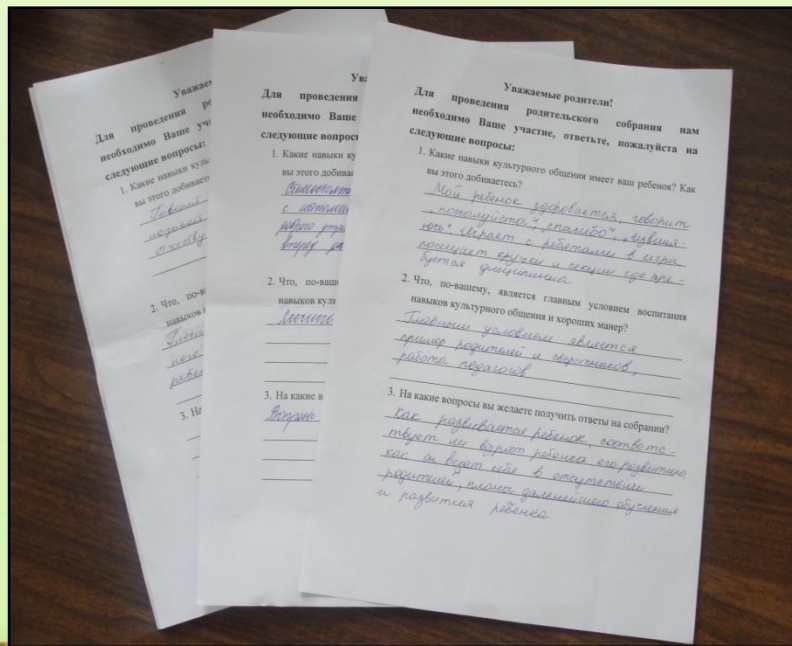 Уважаем
Для проведения ро
необходимо Ваше уч
следующие вопросы:
1. Какие навыки куль
вы этого добивает
2. Что, по-в
навыков
3. На
Ува
Для проведения
необходимо Ваше
следующие вопрос
1. Какие навыки ку
вы этого добива
2. Что, по-ваш
навыков куль
Личност
3. На какие в
Вопросы
Уважаемые родители!
Для проведения родительского собрания нам
необходимо Ваше участие, ответьте, пожалуйста на
следующие вопросы:
1. Какие навыки культурного общения имеет ваш ребенок? Как
вы этого добиваетесь?
Мой ребенок здоровается, говорит
"пожалуйста", "спасибо", "извиня-
юсь". Играет с ребятами в игры
посещает кружки и секции где тре-
буется дисциплина
2. Что, по-вашему, является главным условием воспитания
навыков культурного общения и хороших манер?
Главным условием является
пример родителей и сверстников,
работа педагогов
3. На какие вопросы вы желаете получить ответы на собрании?
Как развивается ребенок, соответс-
твует ли возраст ребенка его развитию,
как он ведет себя в отсутствии
родителей, планы дальнейшего обучения
и развития ребенка.